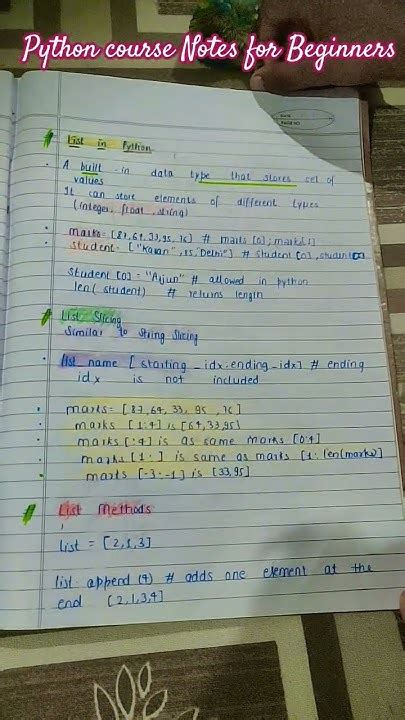 Python course Notes for Beginners
DATE
PAGE NO
# List in Python
• A built-in data type that stores set of
values
It can store elements of different types
(integer, float, string)
• marks = [87, 64, 33, 95, 76] # marks [0], marks[1]
• student = ["Karan", 85, "Delhi"] # student [0], student
student [0] = "Arjun" # allowed in python
len (student) # returns length
# List Slicing
Similar to String Slicing
• list_name [starting_idx:ending_idx] # ending
idx is not included
• marks = [87, 64, 33, 95, 76]
• marks [1:4] is [64,33,95]
• marks [:4] is as same marks [0:4]
• marks [1:] is same as marks [1: len(marks)]
• marks [-3:-1] is [33,95]
# List Methods
list = [2,1,3]
list.append (4) # adds one element at the
end [2,1,3,4]